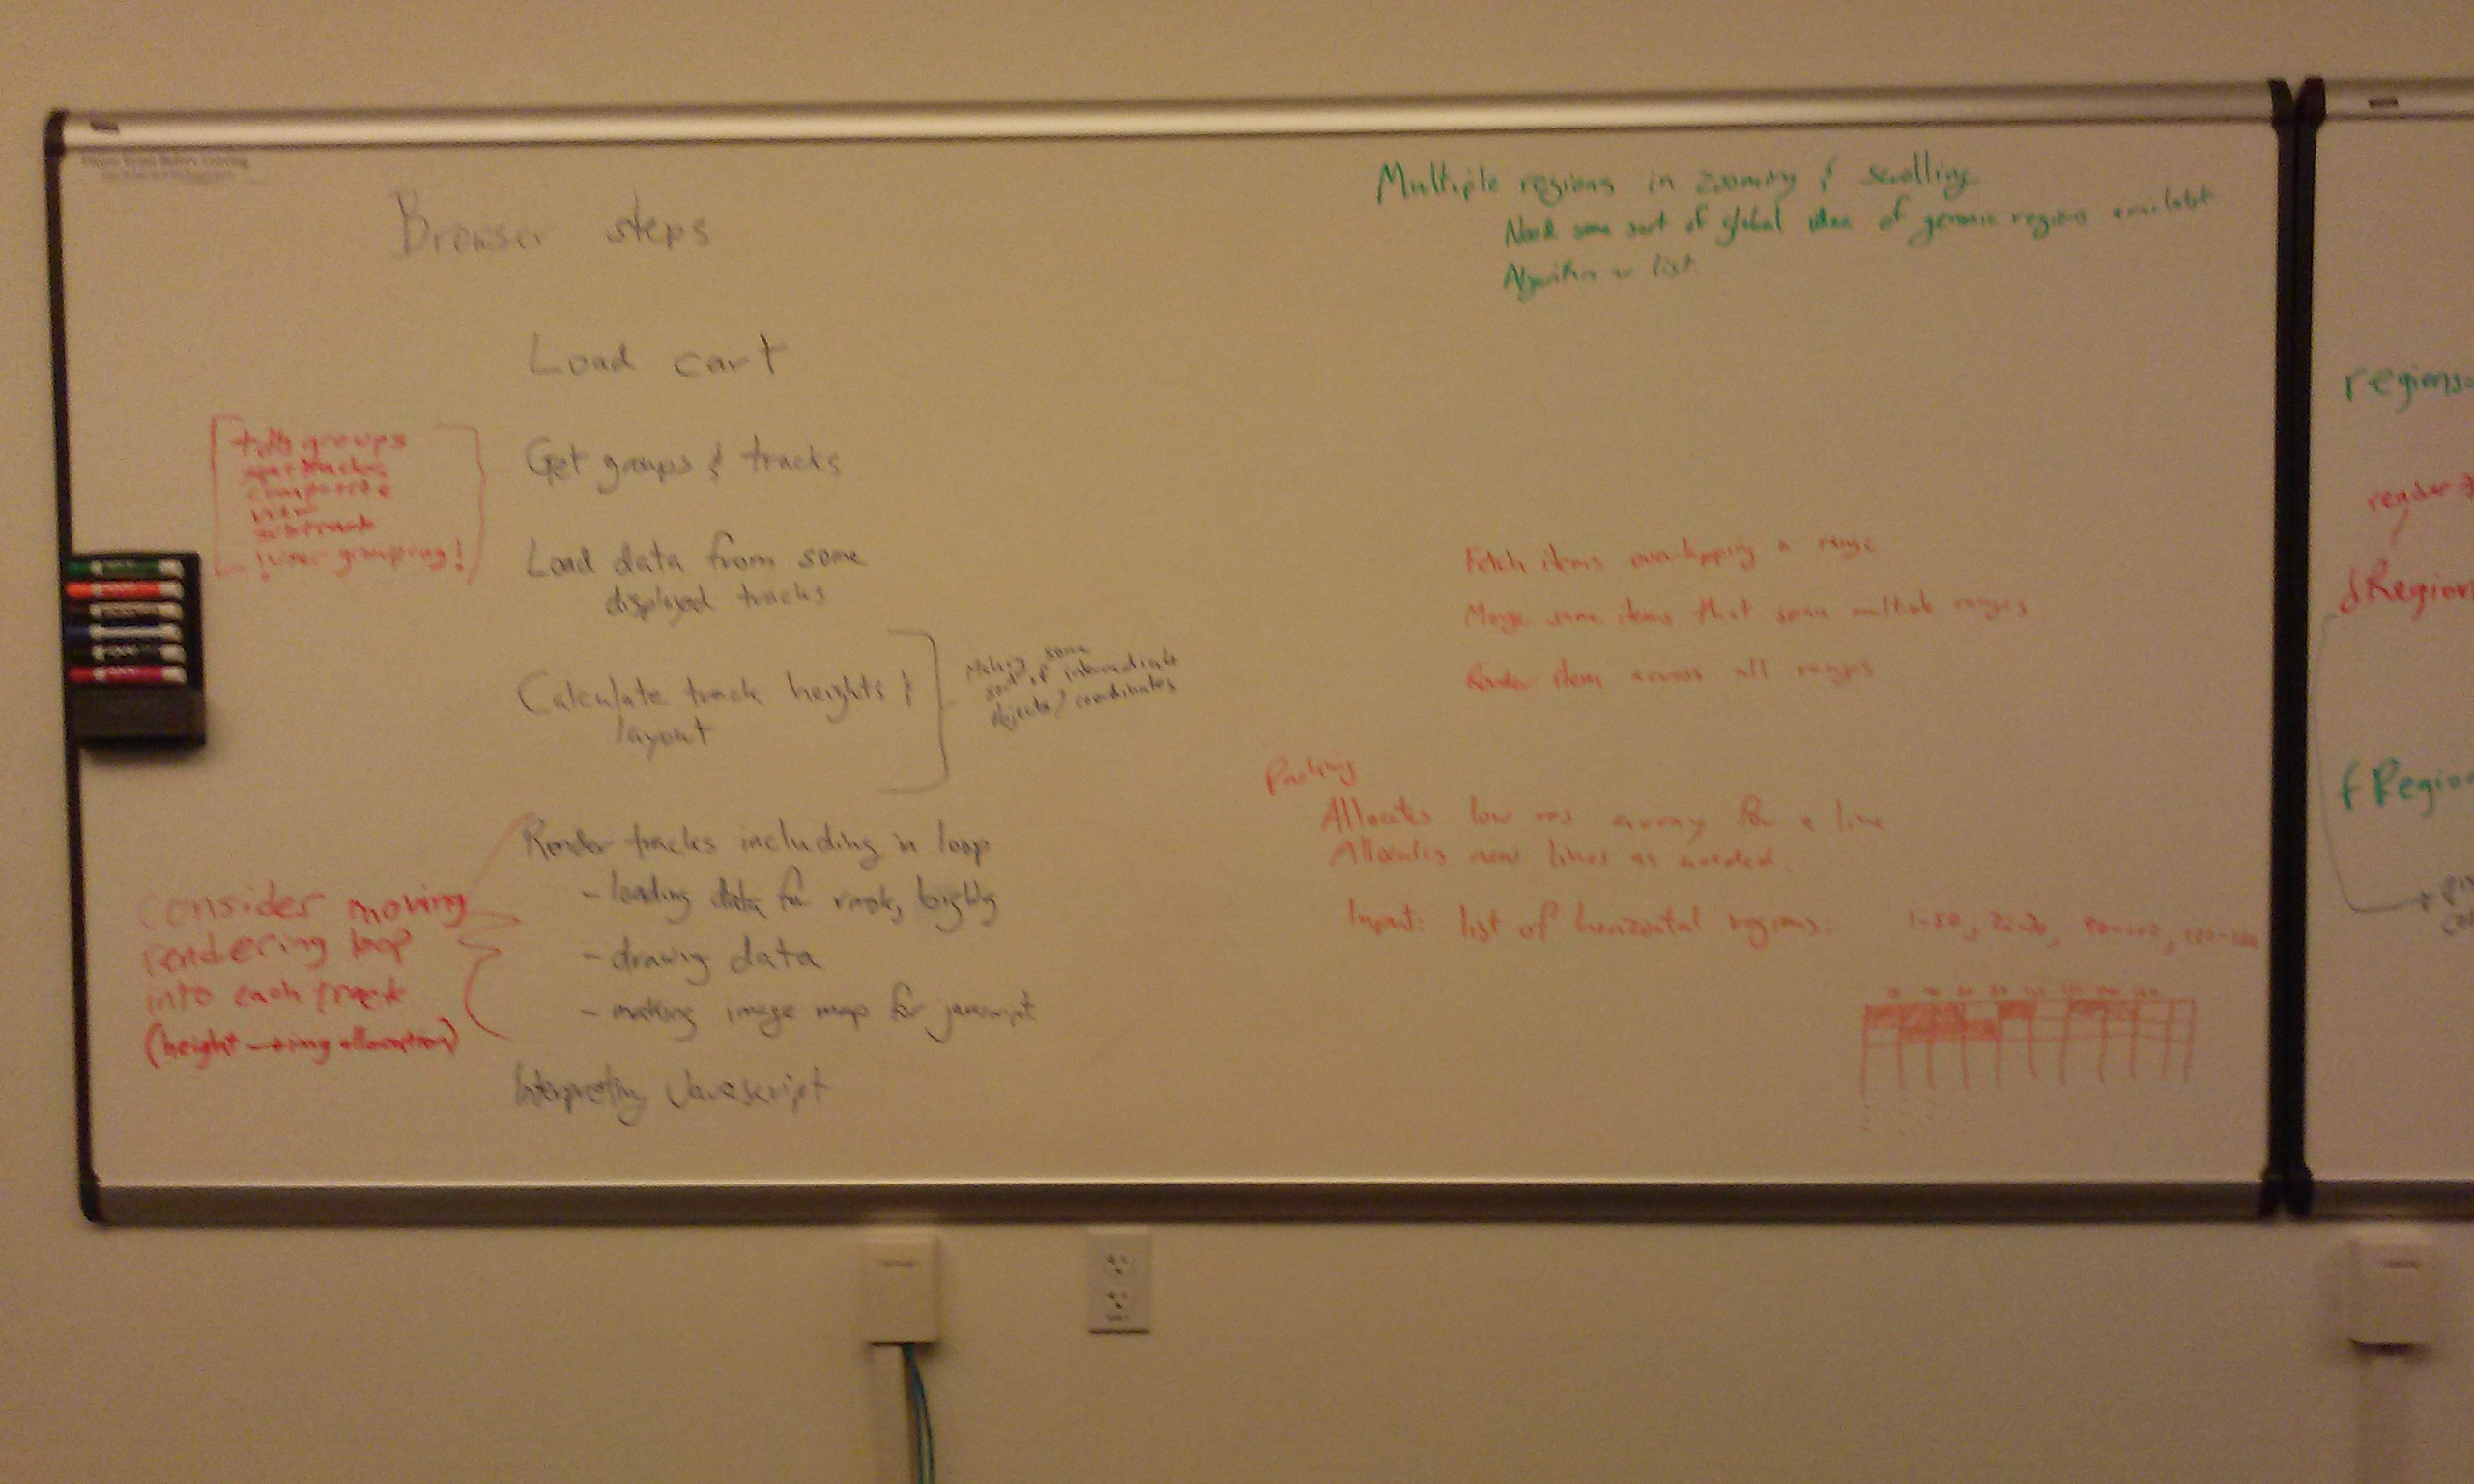 Please Erase Before Leaving
Browser steps
Load cart
Get groups & tracks
Load data from some
displayed tracks
Calculate track heights &
layout
Making some
sort of intermediate
objects / coordinates
Render tracks including in loop
- loading data for
- drawing data
- making image map for javascript
Interpreting Javascript
groups
composite
view
!user grouping!
consider moving
rendering loop
into each track
(height → img allocation)
Multiple regions in zooming & scrolling
Need some sort of global idea of genomic regions available
Algorithm or list.
Fetch items overlapping a range
Merge same items that span multiple ranges
Render item across all ranges
Packing
Allocates low res array for a line
Allocates new lines as needed.
Input: list of horizontal regions: 1-50,
regions
render
Region